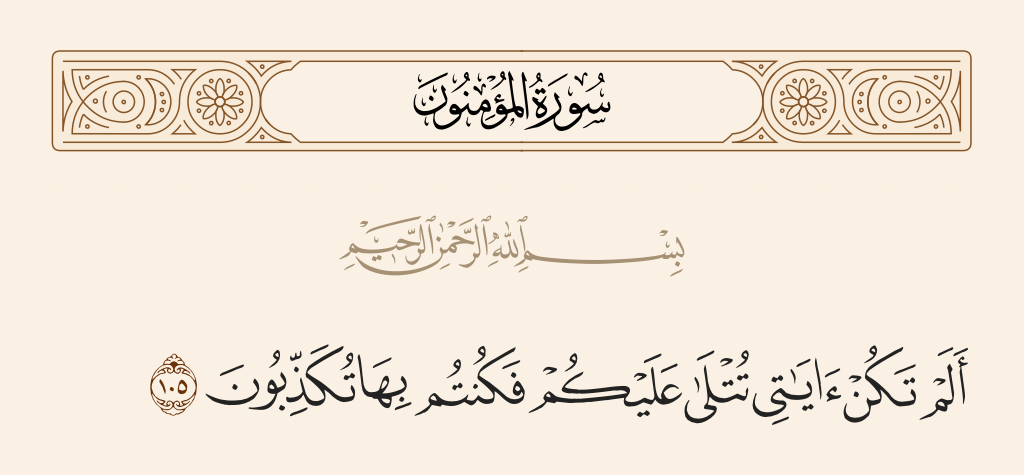 سُورَةُ الْمُؤْمِنُونَ
بِسْمِ ٱللَّهِ ٱلرَّحْمَٰنِ ٱلرَّحِيمِ
أَلَمْ تَكُنْ ءَايَٰتِى تُتْلَىٰ عَلَيْكُمْ فَكُنتُم بِهَا تُكَذِّبُونَ ١٠٥